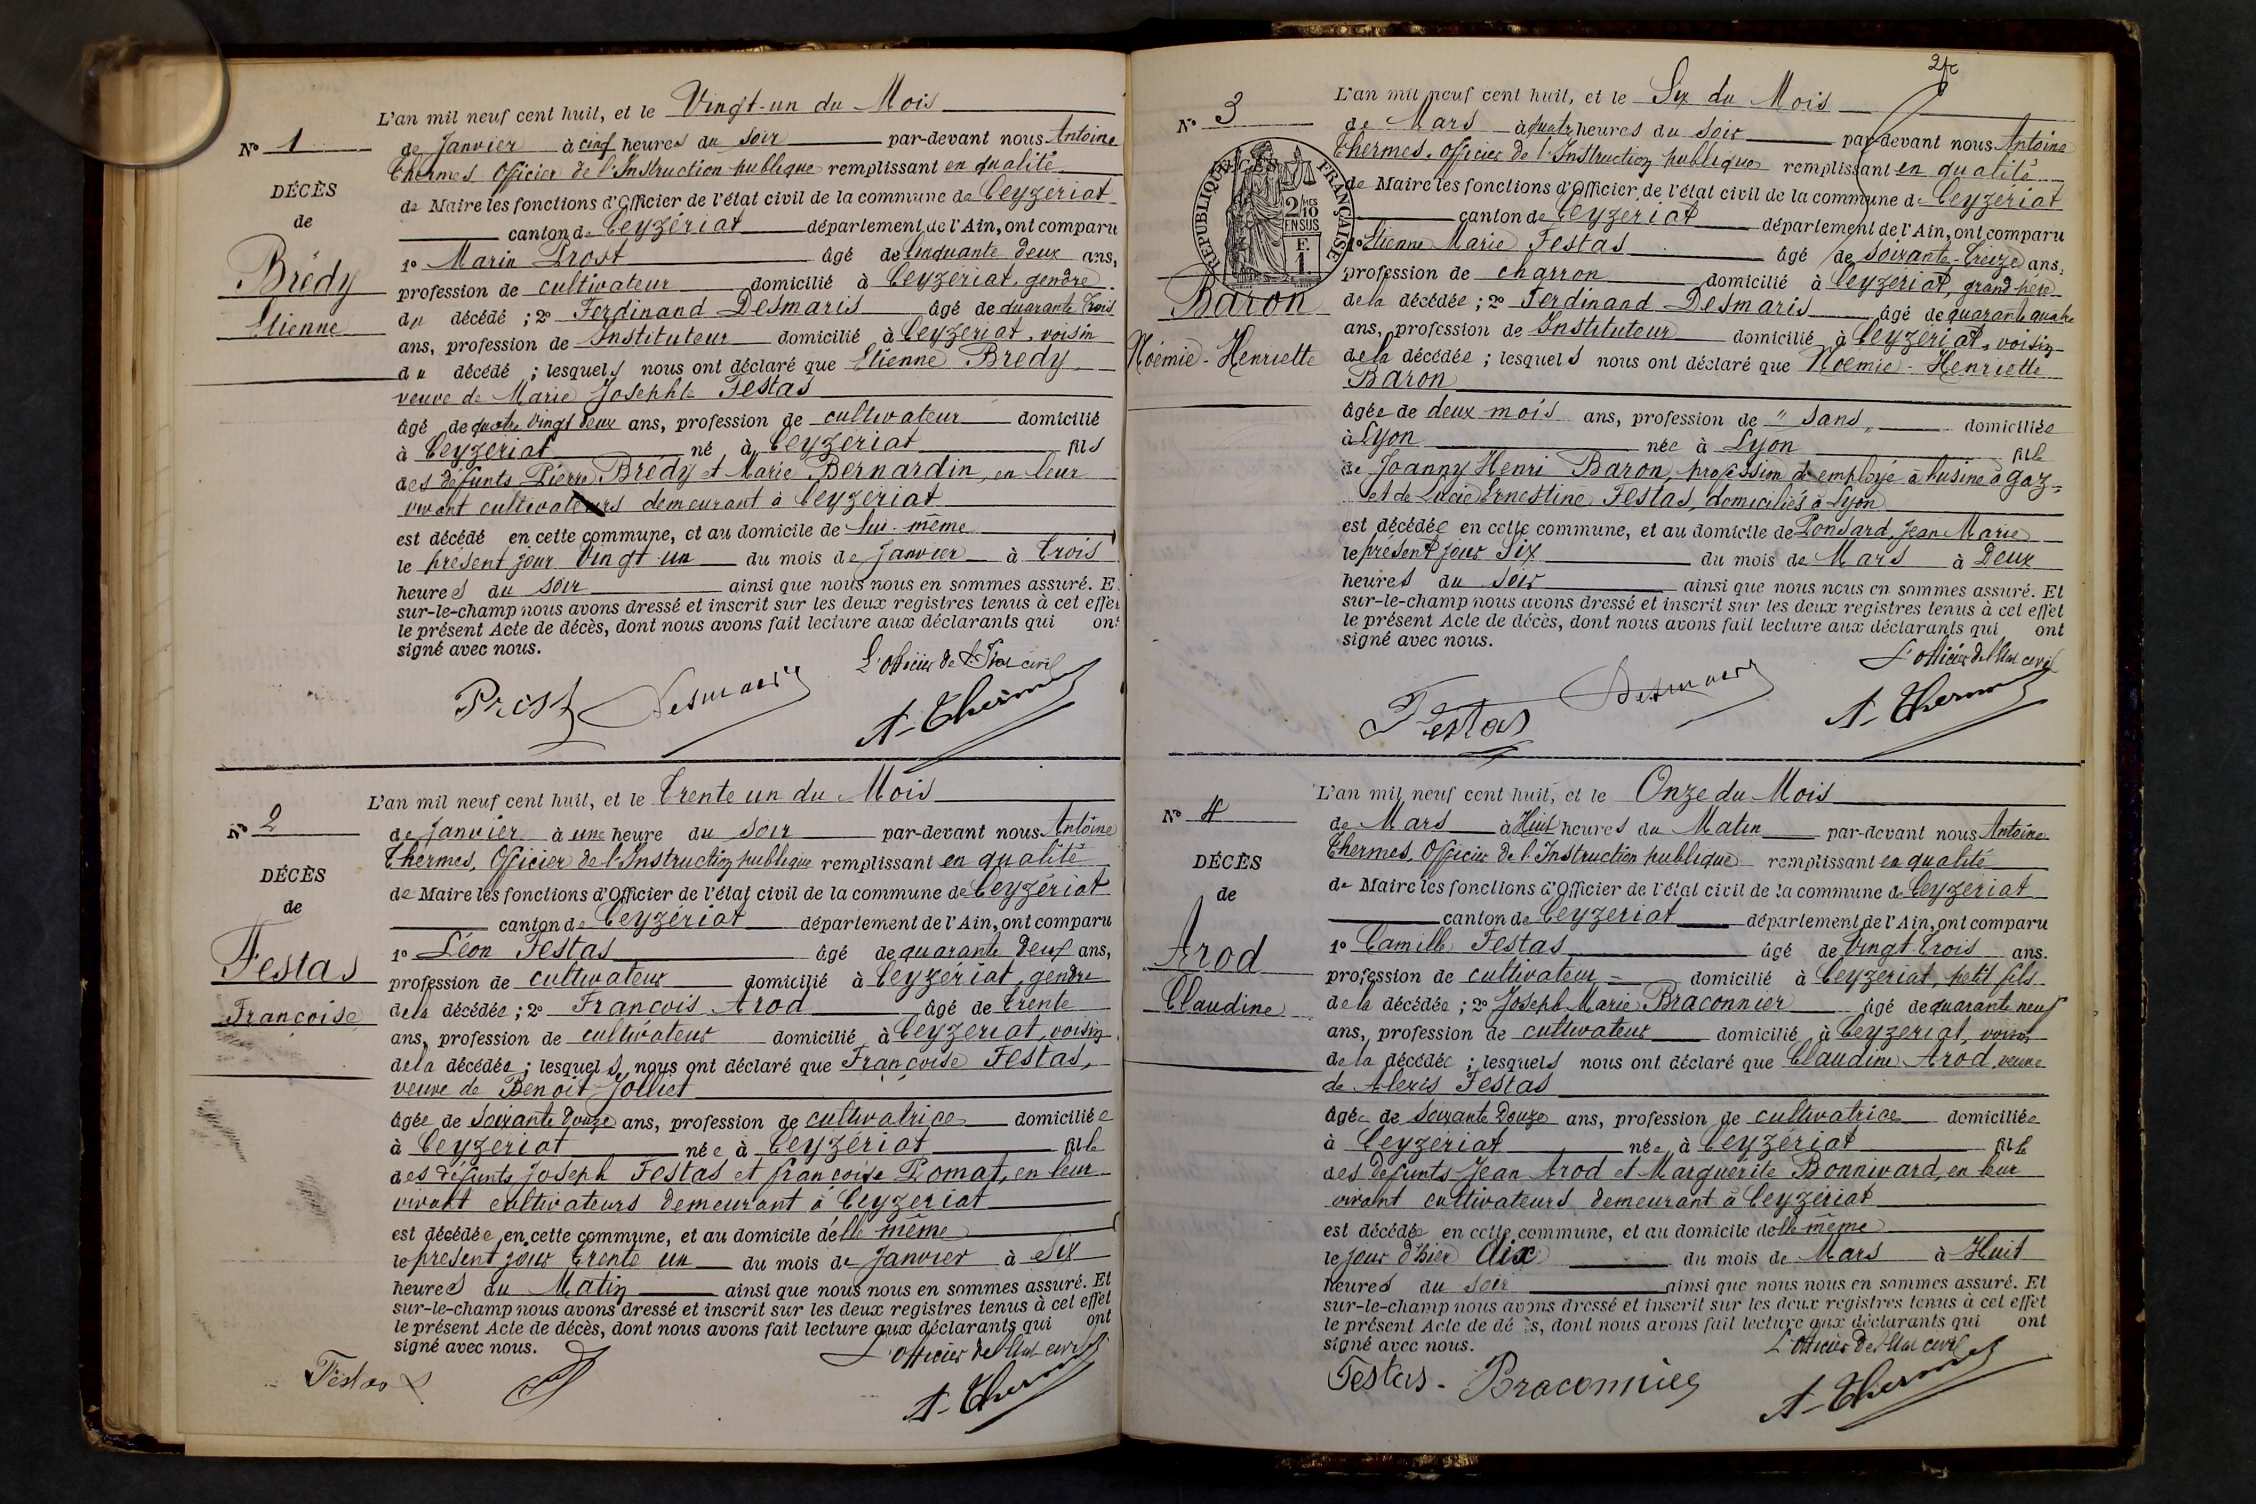 L'an mil neuf cent huit, et le Vingt-un du Mois
N° 1
de Janvier à cinq heures du soir par-devant nous Antoine
Thermes Officier de l'Instruction publique remplissant en qualité
DÉCÈS
de Maire les fonctions d'Officier de l'état civil de la commune de Ceyzériat
de
canton de Ceyzériat département de l'Ain, ont comparu
1° Marin Prost âgé de Cinquante deux ans,
Brédy
profession de cultivateur domicilié à Ceyzériat, gendre
du décédé ; 2° Ferdinand Desmaris âgé de quarante trois
Etienne
ans, profession de Instituteur domicilié à Ceyzériat, voisin
du décédé ; lesquels nous ont déclaré que Etienne Brédy,
veuve de Marie Josephte Festas
âgé de quatre vingt deux ans, profession de cultivateur domicilié
à Ceyzériat né à Ceyzériat fils
des défunts Pierre Brédy et Marie Bernardin, en leur
vivant cultivateurs demeurant à Ceyzériat
est décédé en cette commune, et au domicile de lui-même
le présent jour vingt un du mois de Janvier à trois
heures du soir ainsi que nous nous en sommes assuré. E
sur-le-champ nous avons dressé et inscrit sur les deux registres tenus à cet effet
le présent Acte de décès, dont nous avons fait lecture aux déclarants qui ont
signé avec nous.
L'officier de l'Etat civil
Prost Desmaris A. Thermes
L'an mil neuf cent huit, et le Trente un du Mois
N° 2
de Janvier à une heure du soir par-devant nous Antoine
Thermes, Officier de l'Instruction publique remplissant en qualité
DÉCÈS
de Maire les fonctions d'Officier de l'état civil de la commune de Ceyzériat
de
canton de Ceyzériat département de l'Ain, ont comparu
1° Léon Festas âgé de quarante deux ans,
Festas
profession de cultivateur domicilié à Ceyzériat, gendre
Françoise
de la décédée ; 2° François Arod âgé de trente
ans, profession de cultivateur domicilié à Ceyzériat, voisin
de la décédée ; lesquels nous ont déclaré que Françoise Festas,
veuve de Benoit Jolliet
âgée de Soixante douze ans, profession de cultivatrice domiciliée
à Ceyzériat née à Ceyzériat fille
des défunts Joseph Festas et françoise Pomat, en leur
vivant cultivateurs demeurant à Ceyzériat
est décédée en cette commune, et au domicile d'elle même
le présent jour trente un du mois de Janvier à Six
heures du Matin ainsi que nous nous en sommes assuré. Et
sur-le-champ nous avons dressé et inscrit sur les deux registres tenus à cet effet
le présent Acte de décès, dont nous avons fait lecture aux déclarants qui ont
signé avec nous.
L'officier de l'Etat civil
Festas A. Thermes
L'an mil neuf cent huit, et le Six du Mois
N° 3
de Mars à quatre heures du soir par-devant nous Antoine
Thermes, Officier de l'Instruction publique remplissant en qualité
RÉPUBLIQUE FRANÇAISE
2/10 MES EN SUS
F. 1.
de Maire les fonctions d'Officier de l'état civil de la commune de Ceyzériat
canton de Ceyzériat département de l'Ain, ont comparu
1° Etienne Marie Festas âgé de soixante-treize ans,
profession de charron domicilié à Ceyzériat, grand-père
Baron
de la décédée ; 2° Ferdinand Desmaris âgé de quarante quatre
ans, profession de Instituteur domicilié à Ceyzériat, voisin
Noémie-Henriette
de la décédée ; lesquels nous ont déclaré que Noémie-Henriette
Baron
âgée de deux mois ans, profession de " sans " domiciliée
à Lyon née à Lyon fille
de Joanny Henri Baron, profession de employé à l'usine à gaz
et de Lucie Ernestine Festas, domiciliés à Lyon
est décédée en cette commune, et au domicile de Ponsard, Jean Marie
le présent jour Six du mois de Mars à Deux
heures du soir ainsi que nous nous en sommes assuré. Et
sur-le-champ nous avons dressé et inscrit sur les deux registres tenus à cet effet
le présent Acte de décès, dont nous avons fait lecture aux déclarants qui ont
signé avec nous.
L'officier de l'Etat civil
Festas Desmaris A. Thermes
L'an mil neuf cent huit, et le Onze du Mois
N° 4
de Mars à Huit heures du Matin par-devant nous Antoine
Thermes, Officier de l'Instruction publique remplissant en qualité
DÉCÈS
de Maire les fonctions d'Officier de l'état civil de la commune de Ceyzériat
de
canton de Ceyzériat département de l'Ain, ont comparu
1° Camille Festas âgé de Vingt trois ans.
Arod
profession de cultivateur domicilié à Ceyzériat, petit fils
Claudine
de la décédée ; 2° Joseph Marie Braconnier âgé de quarante neuf
ans, profession de cultivateur domicilié à Ceyzériat, voisin
de la décédée ; lesquels nous ont déclaré que Claudine Arod, veuve
de Alexis Festas
âgée de Soixante Douze ans, profession de cultivatrice domiciliée
à Ceyzériat née à Ceyzériat fille
des défunts Jean Arod et Marguerite Bonnivard, en leur
vivant cultivateurs demeurant à Ceyzériat
est décédée en cette commune, et au domicile d'elle même
le jour d'hier dix du mois de Mars à Huit
heures du soir ainsi que nous nous en sommes assuré. Et
sur-le-champ nous avons dressé et inscrit sur les deux registres tenus à cet effet
le présent Acte de décès, dont nous avons fait lecture aux déclarants qui ont
signé avec nous.
L'officier de l'Etat civil
Festas - Braconnier A. Thermes